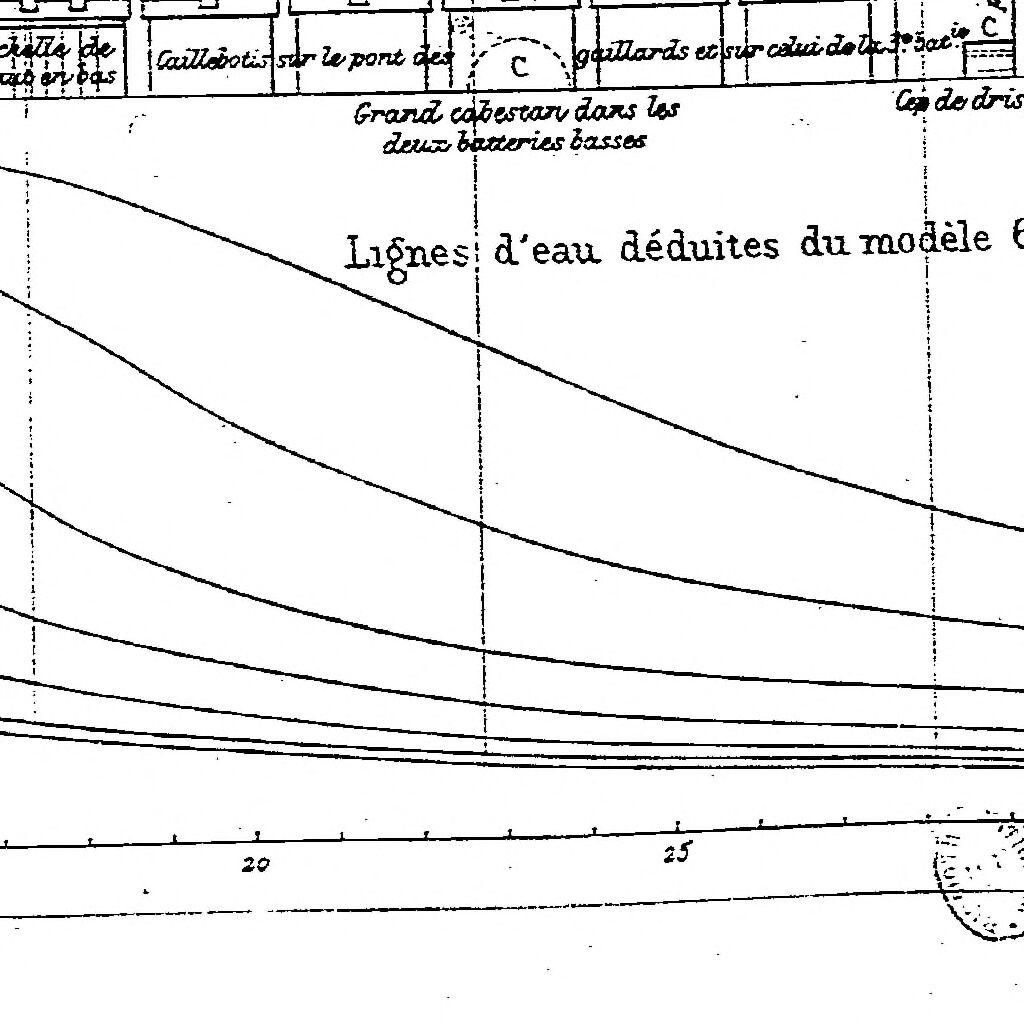 chelle de
en bas
Caillebotis sur le pont des
C
gaillards et sur celui de la 3e batie
C
Grand cabestan dans les
deux batteries basses
Cep de dris
Lignes d'eau déduites du modèle 6
20
25